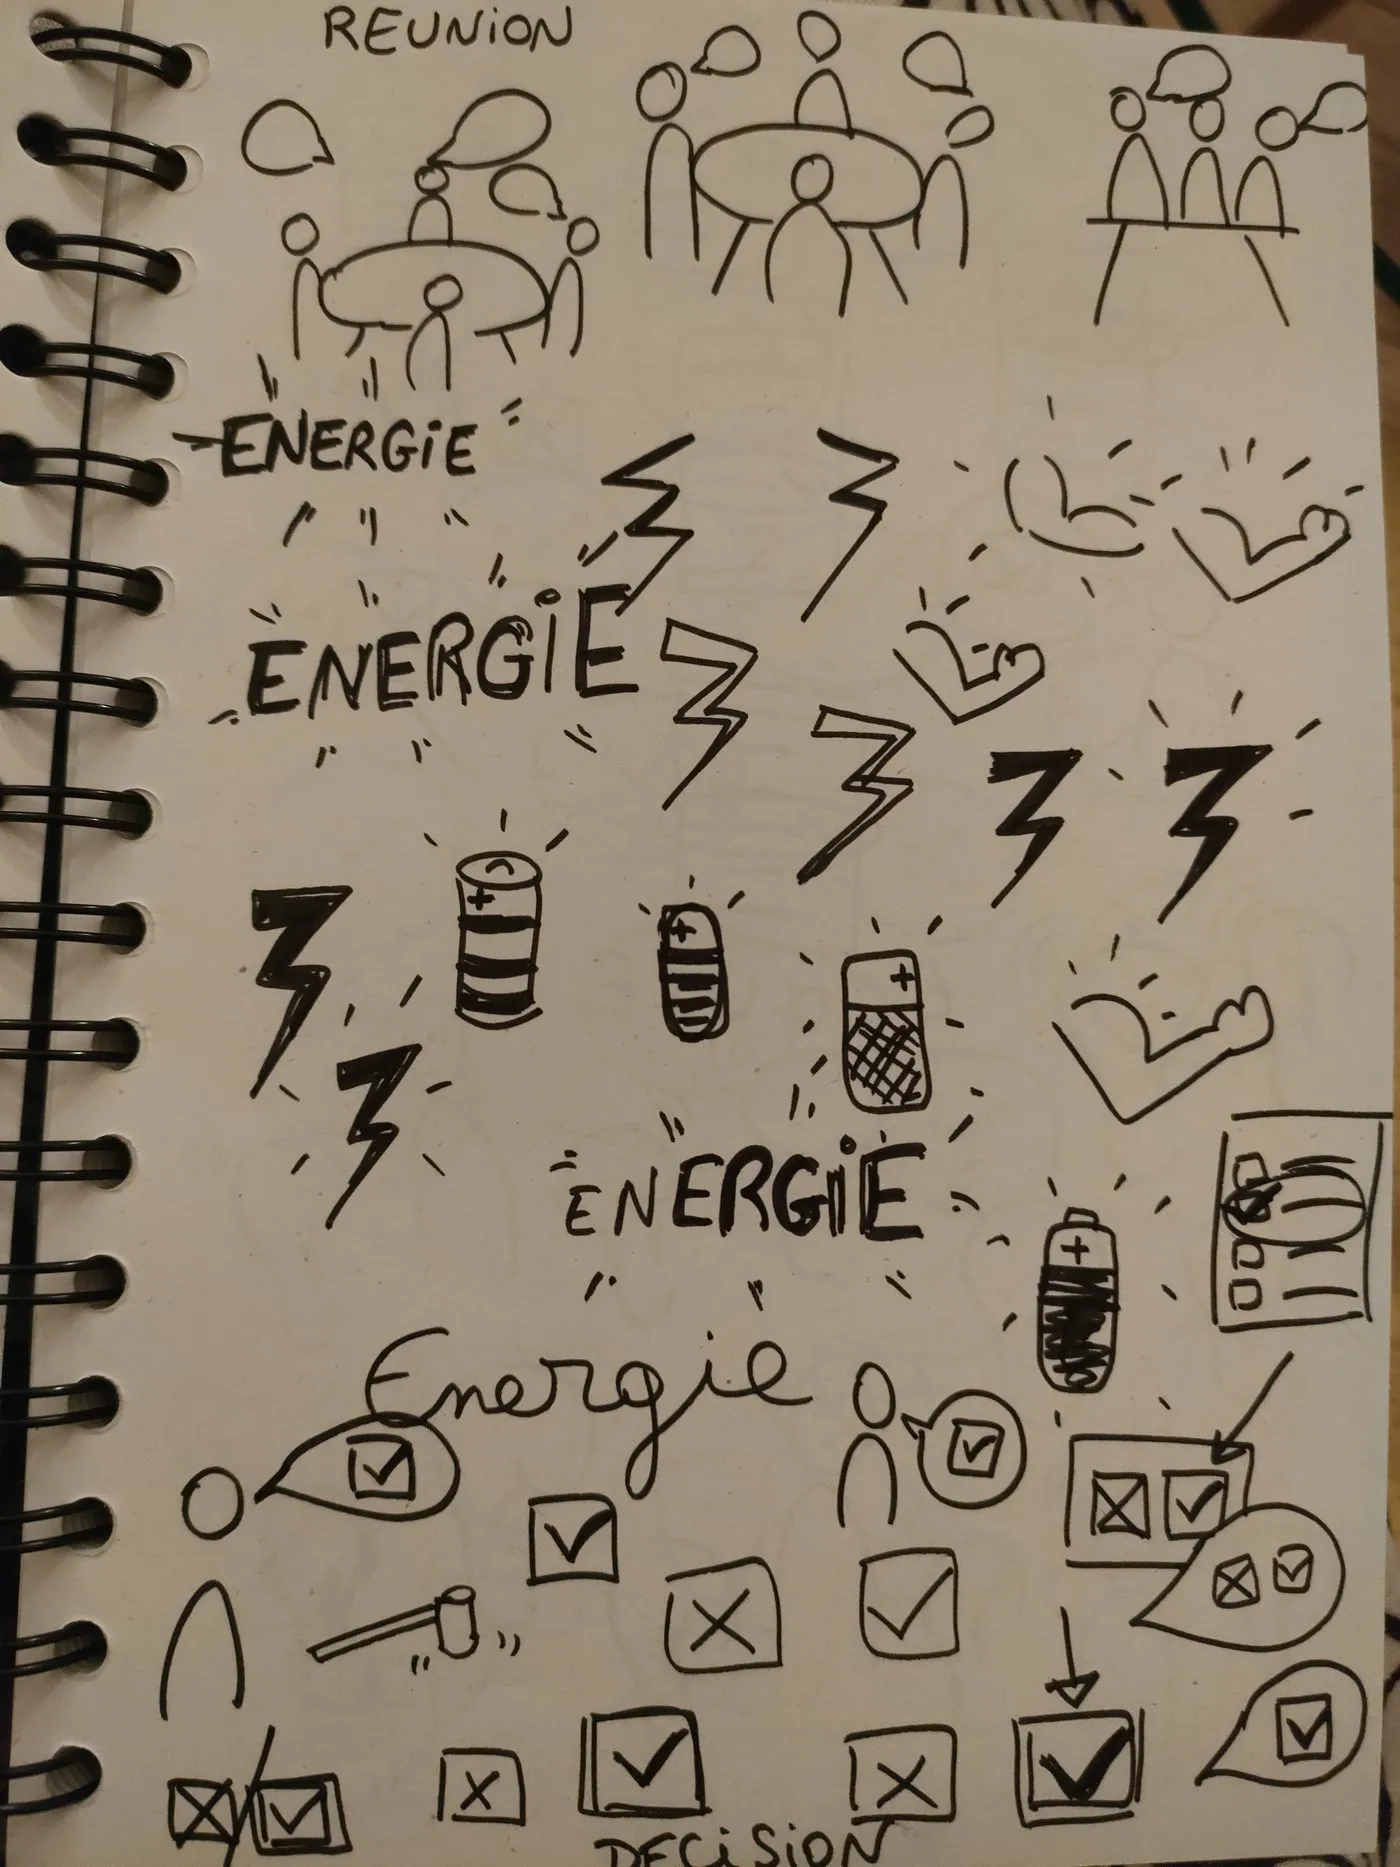 REUNION
ENERGiE
ENERGiE
+
+
+
ENERGiE
+
Energie
DECiSiON